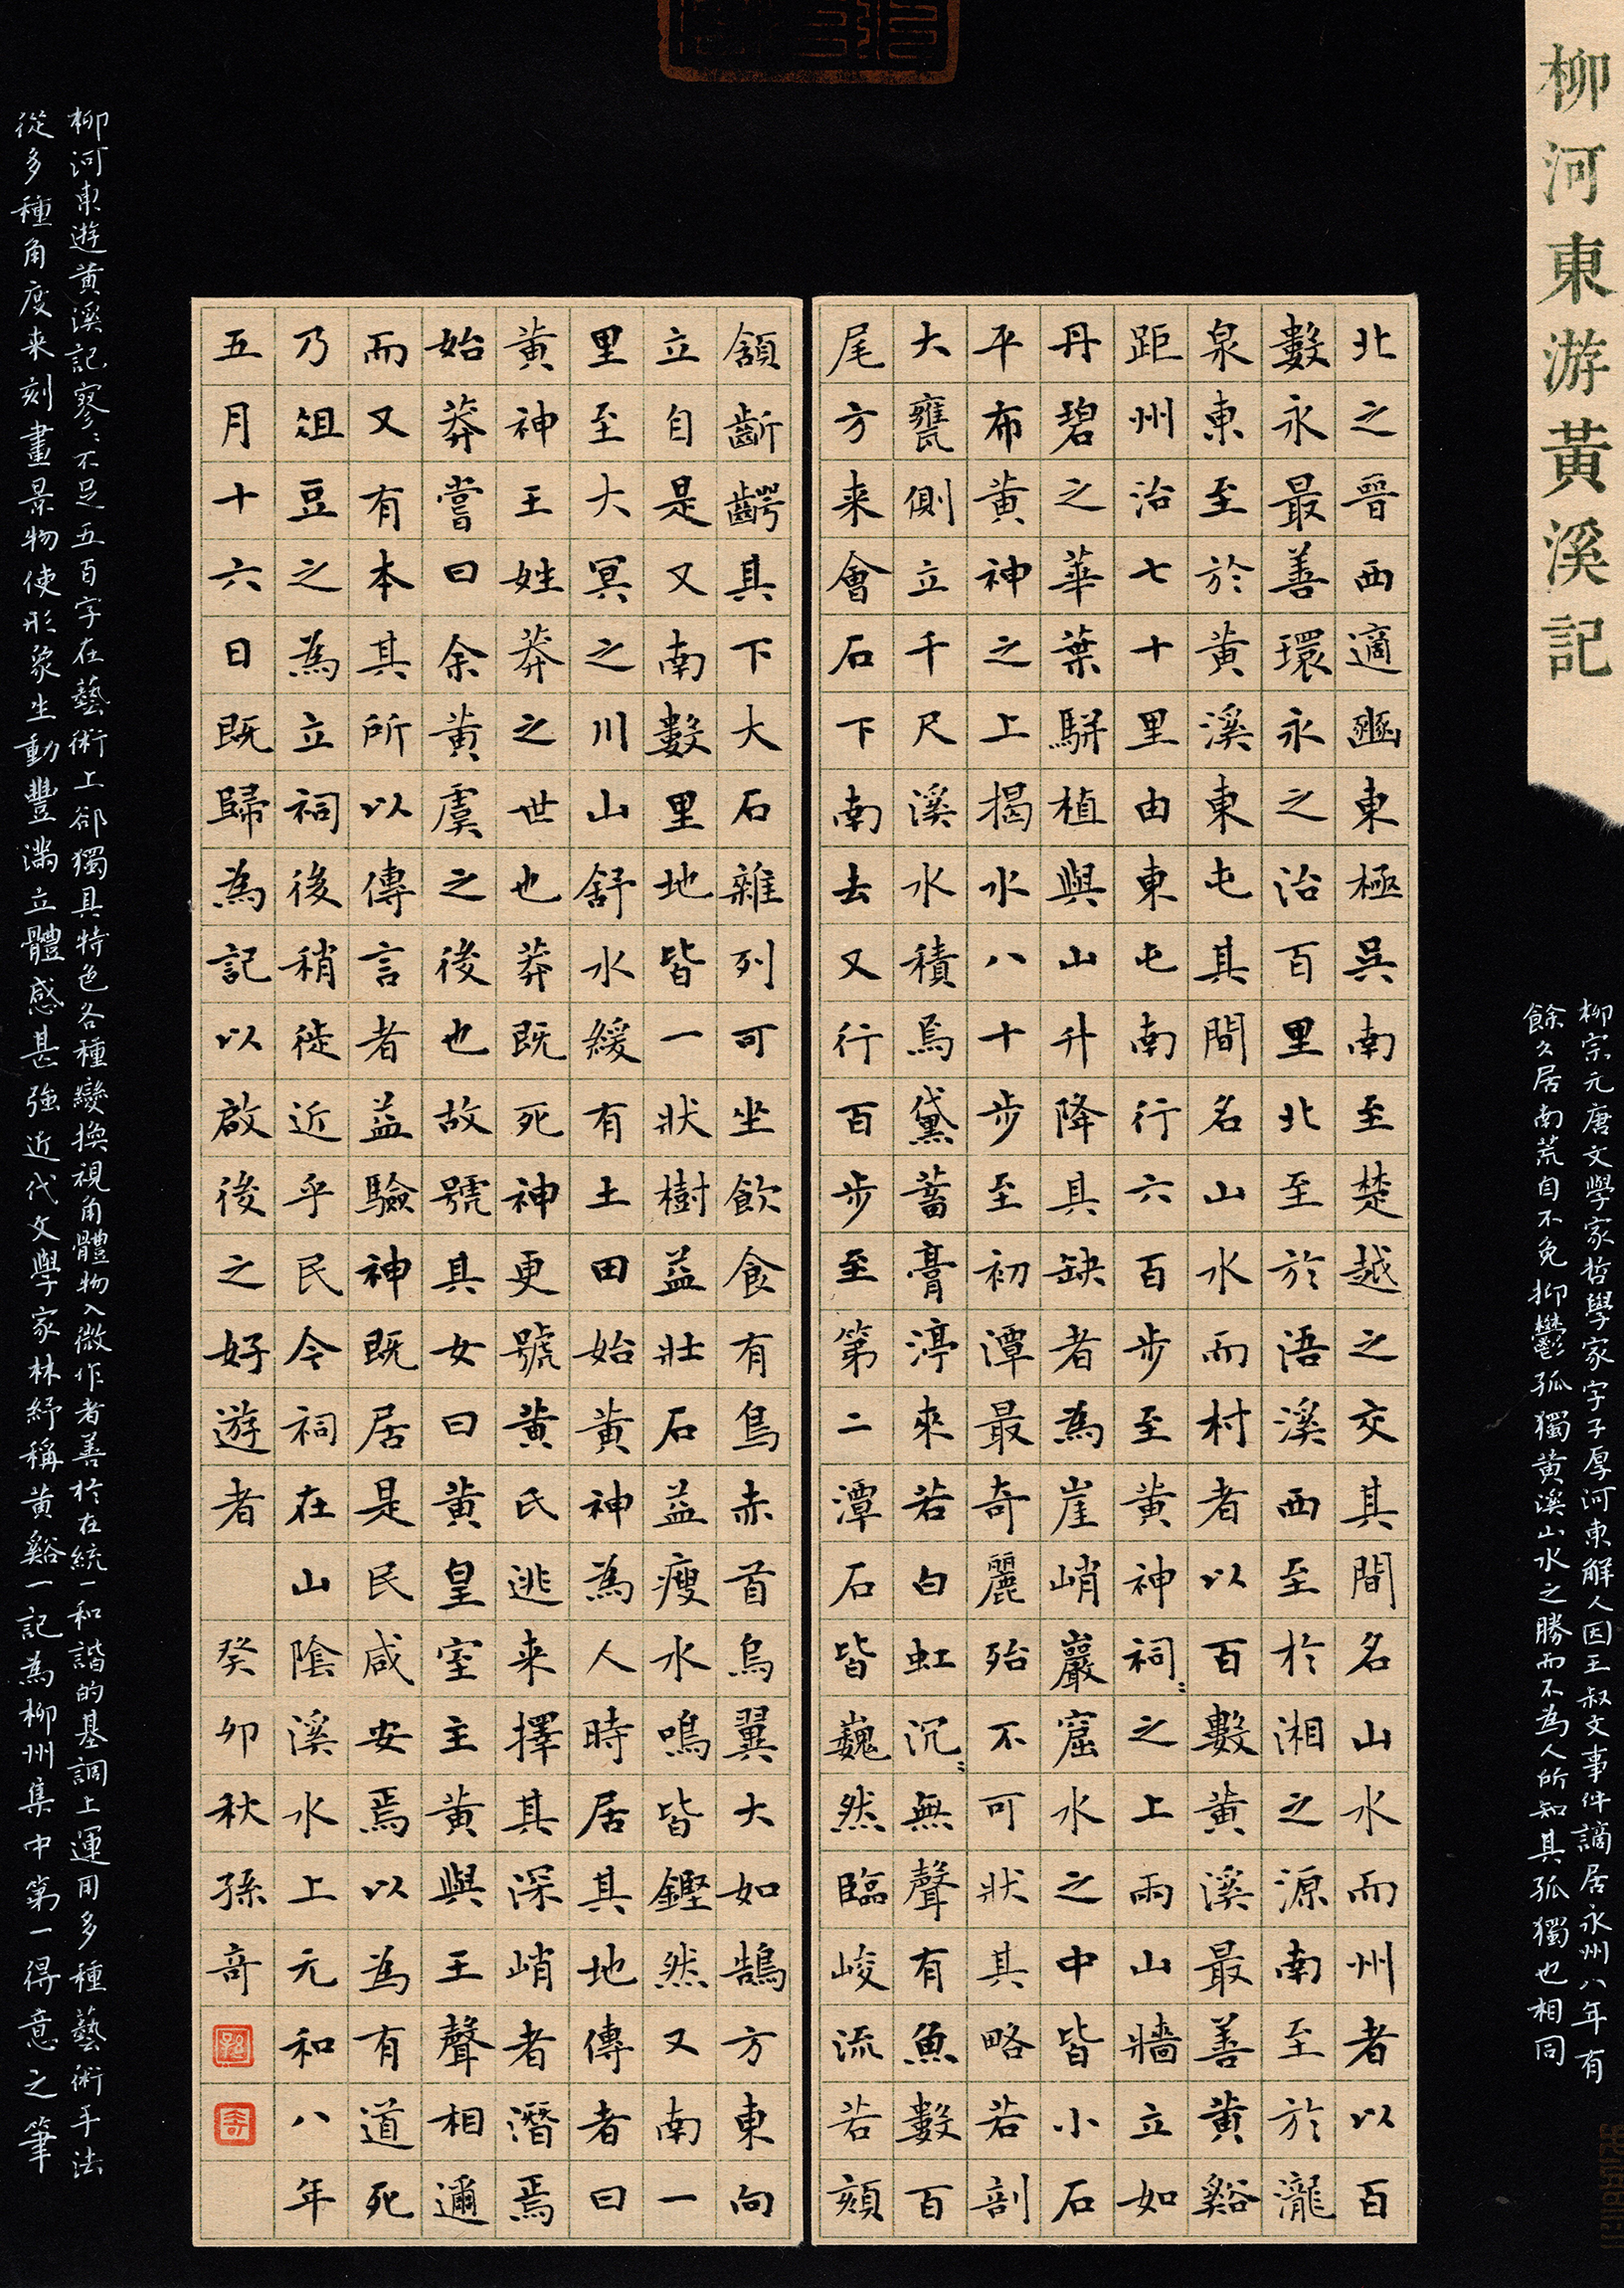 柳河東游黃溪記
柳宗元唐文學家哲學家字子厚河東解人因王叔文事件謫居永州八年有
餘久居南荒自不免抑鬱孤獨黄溪山水之勝而不為人所知其孤獨也相同
北之晉西適豳東極吳南至楚越之交其間名山水而州者以百
數永最善環永之治百里北至於浯溪西至於湘之源南至於瀧
泉東至於黄溪東屯其間名山水而村者以百數黄溪最善黄谿
距州治七十里由東屯南行六百步至黄神祠〻之上兩山牆立如
丹碧之華葉駢植與山升降具缺者為崖峭巖窟水之中皆小石
平布黄神之上揭水八十步至初潭最奇麗殆不可狀其略若剖
大甕側立千尺溪水積焉黛蓄膏渟來若白虹沉〻無聲有魚數百
尾方来會石下南去又行百步至第二潭石皆巍然臨峻流若頦
頷齗齶其下大石雜列可坐飲食有鳥赤首烏翼大如鵠方東向
立自是又南數里地皆一狀樹益壯石益瘦水鳴皆鏗然又南一
里至大冥之川山舒水緩有土田始黄神為人時居其地傳者曰
黄神王姓莽之世也莽既死神更號黄氏逃来擇其深峭者潛焉
始莽嘗曰余黄虞之後也故號其女曰黄皇室主黄與王聲相邇
而又有本其所以傳言者益驗神既居是民咸安焉以為有道死
乃俎豆之為立祠後稍徙近乎民今祠在山陰溪水上元和八年
五月十六日既歸為記以啟後之好遊者 癸卯秋孫奇
柳河東遊黄溪記寥〻不足五百字在藝術上卻獨具特色各種變換視角體物入微作者善於在統一和諧的基調上運用多種藝術手法
從多種角度来刻畫景物使形象生動豐滿立體感甚強近代文學家林紓稱黄谿一記為柳州集中第一得意之筆